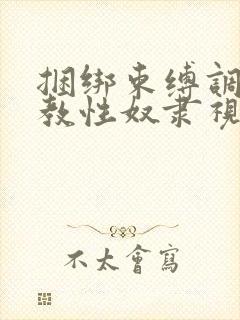 捆绑束缚調
教性奴隶視
不太會寫